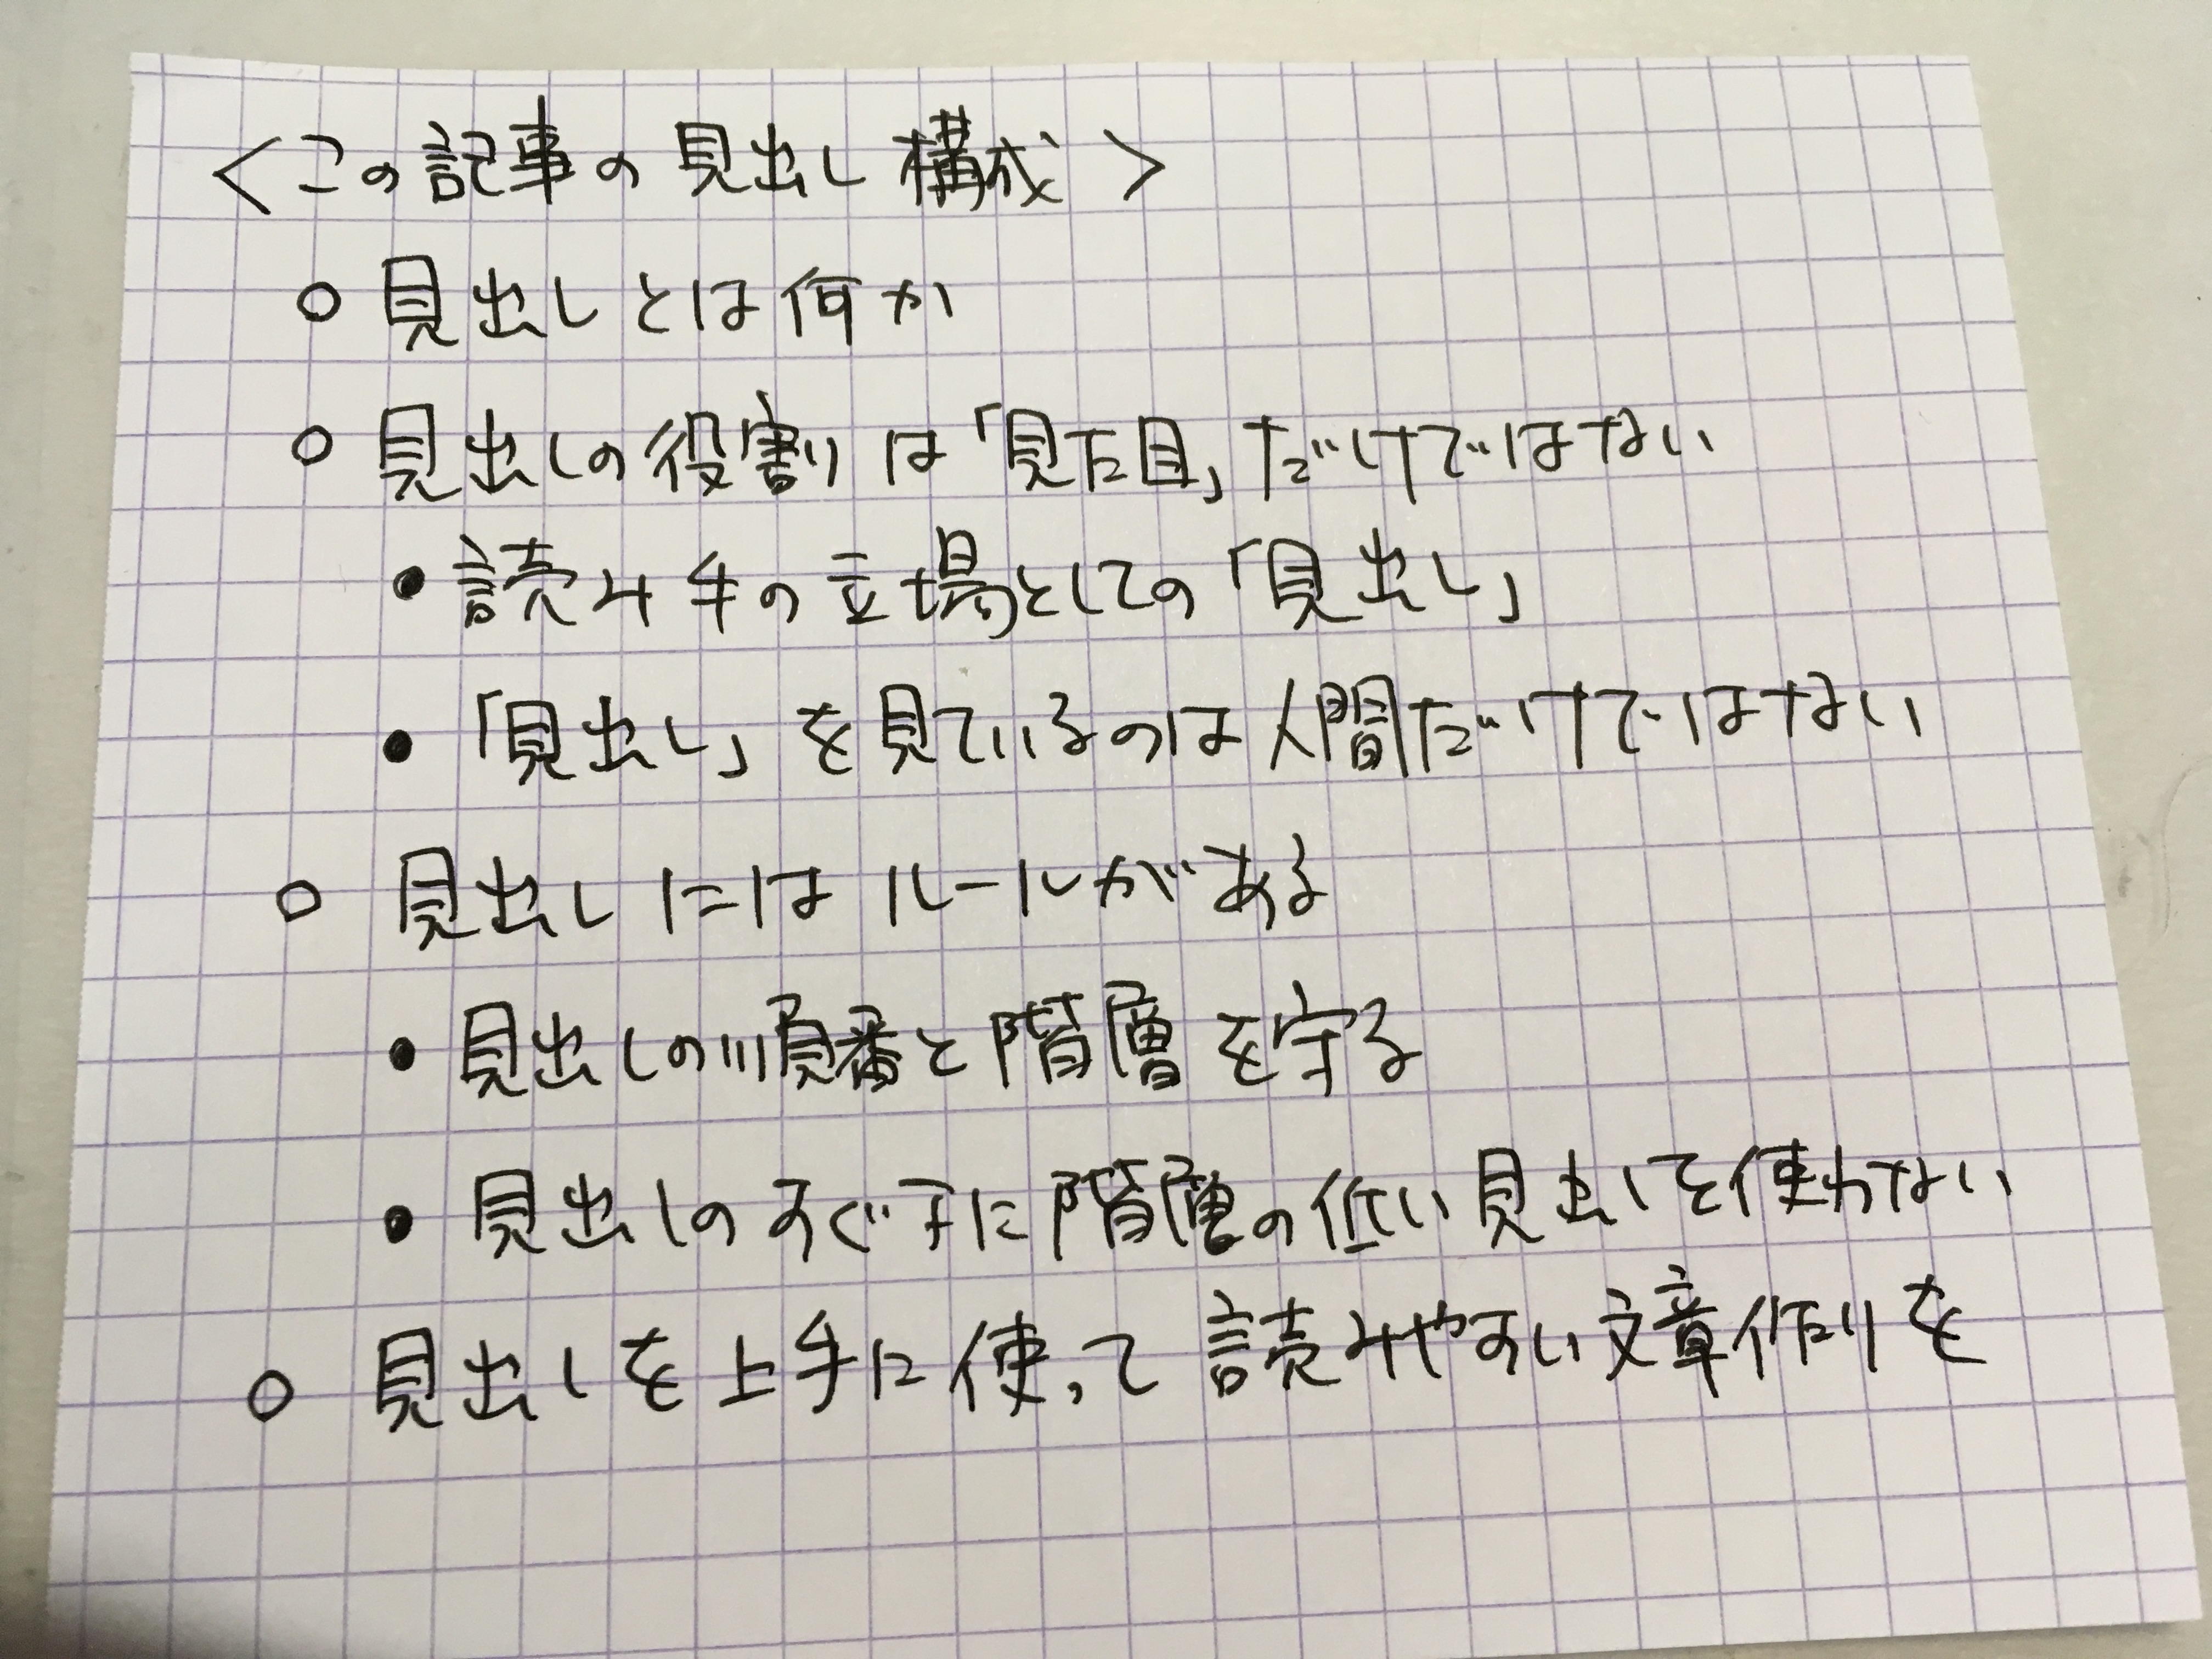 ＜この記事の見出し構成＞
○ 見出しとは何か
○ 見出しの役割は「見た目」だけではない
● 読み手の立場としての「見出し」
● 「見出し」を見ているのは人間だけではない
○ 見出しにはルールがある
● 見出しの順番と階層を守る
● 見出しのすぐ下に階層の低い見出しを使わない
○ 見出しを上手に使って読みやすい文章作りを